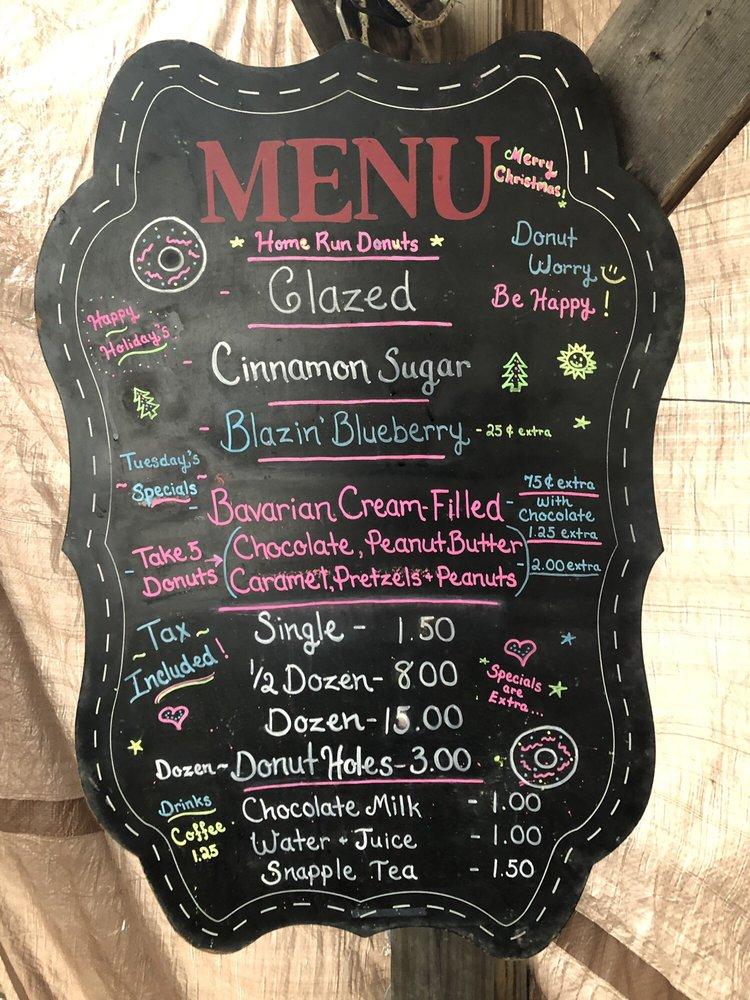 MENU
Merry
Christmas!
Home Run Donuts
Donut
Worry
Be Happy!
- Glazed
Happy
Holiday's
- Cinnamon Sugar
- Blazin' Blueberry - 25¢ extra
Tuesday's
~ Specials ~
- Bavarian Cream-Filled - 75¢ extra
with
Chocolate
1.25 extra
- Take 5
Donuts
Chocolate, Peanut Butter
Caramel, Pretzels + Peanuts - 2.00 extra
Tax
~ Included! ~
Single - 1.50
1/2 Dozen - 8 00
Dozen - 15.00
Specials
are
Extra...
Dozen ~ Donut Holes - 3.00
Drinks
Coffee
1.25
Chocolate Milk - 1.00
Water + Juice - 1.00
Snapple Tea - 1.50